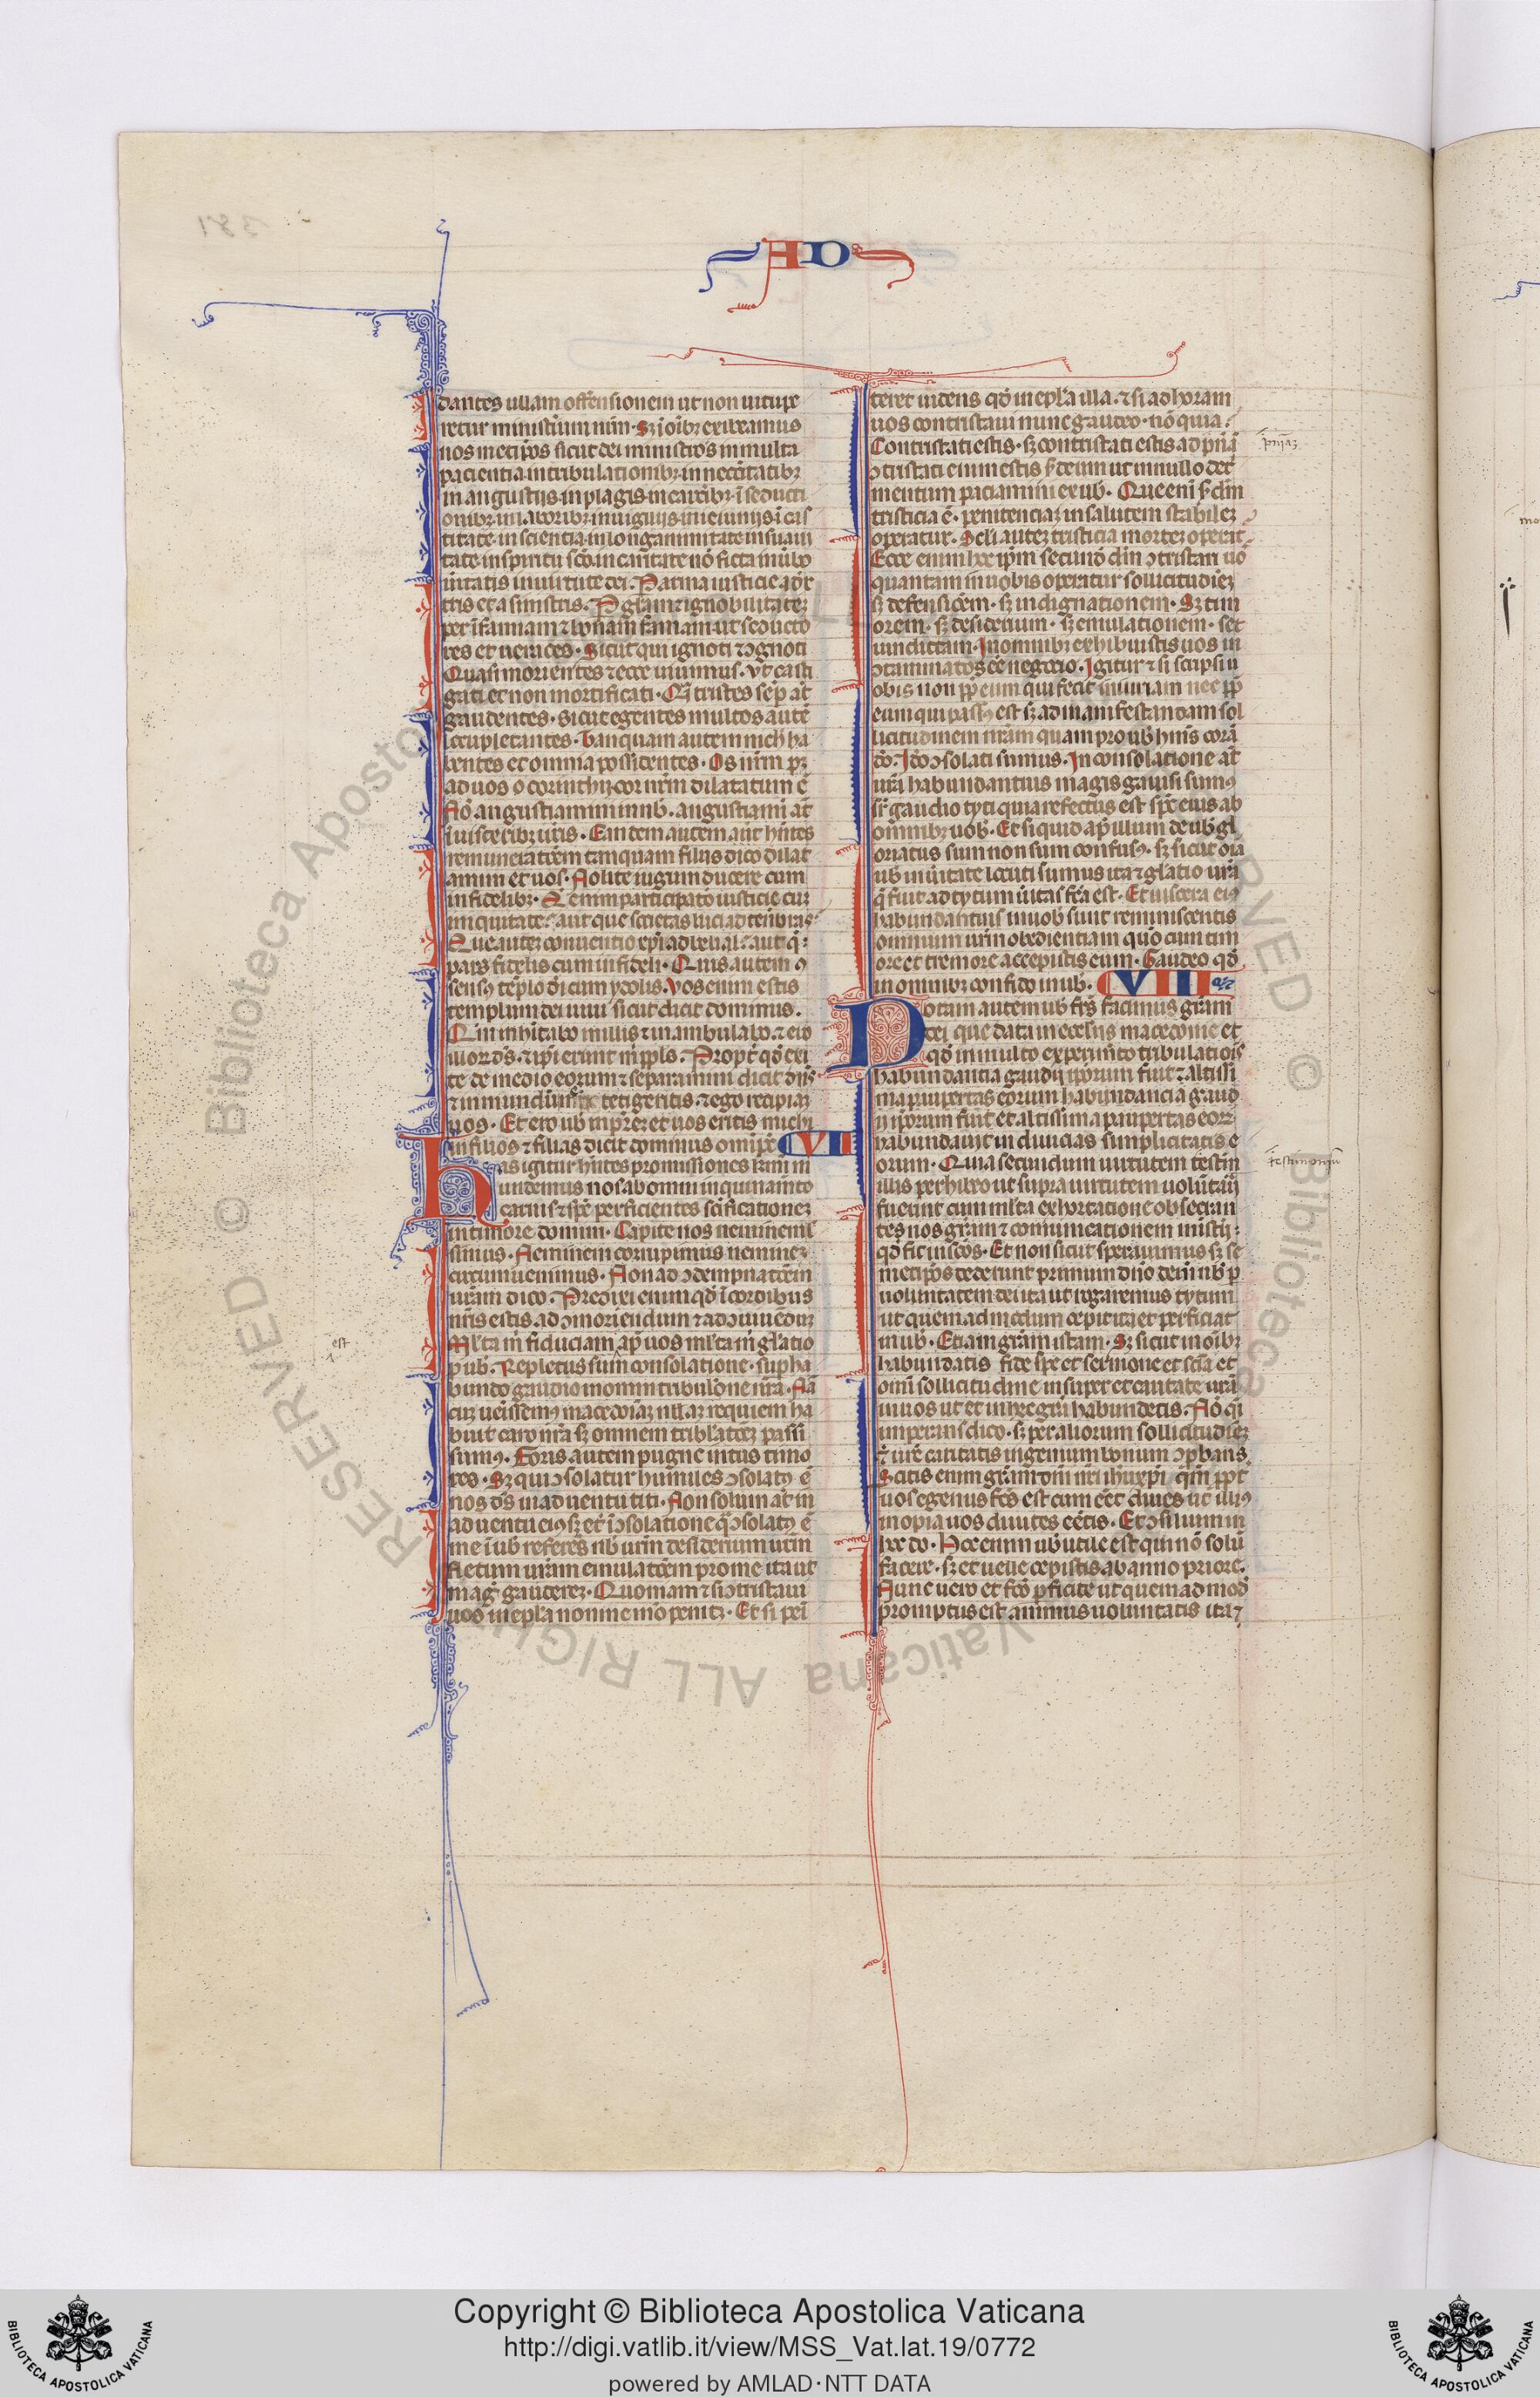 AD
dantes ullam offensionem ut non uitupe
retur ministerium nrm. Sz ī oibz exibeamus
nos metipos sicut dei ministros in multa
paciencia. in tribulationibz. in necessitatibz
in angustijs. in plagis. in carceribz. ī seducti
onibz. in laboribz. in uigilijs. in ieiunijs. ī cas
titate. in scientia. in longanimitate. in suaui
tate. in spiritu sco. in caritate nō ficta. in ūbo
ueritatis. in uirtute dei. Per arma iusticie a dex
tris et a sinistris. P gloriam et ignobilitatez
per īfamiam et bonam famam. ut seducto
res et ueraces. Sicut qui ignoti et cogniti
Quasi morientes et ecce uiuimus. Vt casti
gati et non mortificati. Quasi tristes semp at
gaudentes. Sicut egentes multos autē
locupletantes. Tanquam autem nichil ha
bentes et omnia possidentes. Os nrm pz
ad uos o corinthij. cor nrm dilatatum ē
Nō angustiamini in nob. angustiamini at
ī uisceribz uris. Eandem autem aut hntes
remuneratōem tanquam filijs dico dilat
amini et uos. Nolite iugum ducere cum
infidelibz. Que enim participatio iusticie cuz
iniquitate. aut que societas luci ad tenebras
Que autez conuentio xpi ad belial. aut que
pars fidelis cum infideli. Quis autem con
sensus templo dei cum ydolis. Vos enim estis
templum dei uiui sicut dicit dominus.
Qm inhitabo in illis et inambulabo. et ero
illorum ds. et ipi erunt m ppls. Propt qd exi
te de medio eorum et separamini dicit dns
et inmundum ne tetigeritis. et ego recipiam
uos. Et ero uob in patrem et uos eritis michi
in filios et filias dicit dominus omips VII
Has igitur hntes promissiones kmi m
undemus nos ab omni inquinamento
carnis et spc perficientes scificationez
in timore domini. Capite nos neminem le
simus. Neminem corrupimus neminez
circumuenimus. Non ad condempnatōem
uram dico. Prediximus enim qd ī cordibus
nris estis ad cōmoriendum et ad cōuiuendum
Mlta m fiducia m ap uos mlta m glatio
p uob. Repletus sum consolatione. supha
bundo gaudio in omni tribulatione nra. Nā
cuz uenissemus macedoniaz nullaz requiem ha
buit caro nra sz omnem tribulatōez passi
sumus. Foris autem pugne intus timo
res. Sz qui cōsolatur humiles cōsolatus ē
nos ds in aduentu titi. Non solum at in
aduentu eius sz et ī cōsolatione qua cōsolatus ē
me ī uob referēs nob urm desiderium urm
fletum uram emulatōem pro me ita ut
magis gauderez. Quoniam et si cōtristaui
uos in epla non me ō penitz. Et si peni
teret uidens qd in epla illa. et si ad horam
uos contristaui nunc gaudeo. nō quia
Contristati estis. sz contristati estis ad pniā
pniaz
cōtristati enim estis s deum ut in nullo det
mentum paciamini ex nob. Que enī s dm
tristicia ē. penitenciaz in salutem stabilez
operatur. Scli autez tristicia mortez operat
Ecce enim hoc ipm secundum dm cōtristari uos
quantam in uobis operatur sollicitudinez
sz defensionem. sz indignationem. Sz tim
orem. sz desiderium. sz emulationem. sz
uindictam. In omnibz exhibuistis uos in
cōtaminatos eē negocio. Igitur et si scripsi u
obis non pp eum qui fecit iniuriam nec pp
eum qui passus est sz ad manifestandam sol
licitudinem nram quam pro uob hms corā
do. Ideo cōsolati sumus. In consolatione at
nra habundantius magis gauisi sumus
sr gaudio tyti quia refectus est spc eius ab
omnibz uob. Et si quid ap illum de uob gl
oriatus sum non sum confusus. sz sicut oia
uob in ueritate locuti sumus ita et glatio nra
q fuit ad tytum ueritas fca est. Et uiscera eius
habundantius in uob sunt reminiscentis
omnium urm obedientiam quō cum tim
ore et tremore accepistis eum. Gaudeo qd
in omnibz confido in uob. VIII
Notam autem uob frs facimus gram
dei que data in ecclijs macedonie et
qd in multo experimento tribulationis
habundancia gaudij iporum fuit et altissi
ma paupertas eorum habundancia gaud
ij iporum fuit et altissima paupertas eorz
habundauit in diuicias simplicitatis e
orum. Quia secundum uirtutem testim
testimonium
illis perhibeo et supra uirtutem uoluntarij
fuerunt cum mlta exhortatione obsecran
tes nos gram et cōmunicationem mistij
qd fit in scos. Et non sicut sperauimus sz se
metipos dederunt primum dno dein nob p
uoluntatem dei ita ut rogaremus tytum
ut quemadmodum cepit ita et perficiat
in uob. Etiam gram istam. Sz sicut in oibz
habundatis fide spe et sermone et scia et
omi sollicitudine insuper et caritate nra
in uos ut et in hac gra habundetis. Nō qi
imperans dico. sz per aliorum sollicitudinez
et ure caritatis ingenium bonum cōprobans
Scitis enim gram dni nri ihu xpi qm ppt
uos egenus fcs est cum eēt diues ut illius
inopia uos diuites eētis. Et cōsilium in
hoc do. Hoc enim uob utile est qui nō solū
facere. sz et uelle cepistis ab anno priore.
Nunc uero et fco pficite ut quemadmod
promptus est animus uoluntatis ita et
est
Copyright © Biblioteca Apostolica Vaticana
http://digi.vatlib.it/view/MSS_Vat.lat.19/0772
powered by AMLAD·NTT DATA
BIBLIOTECA APOSTOLICA VATICANA
BIBLIOTECA APOSTOLICA VATICANA